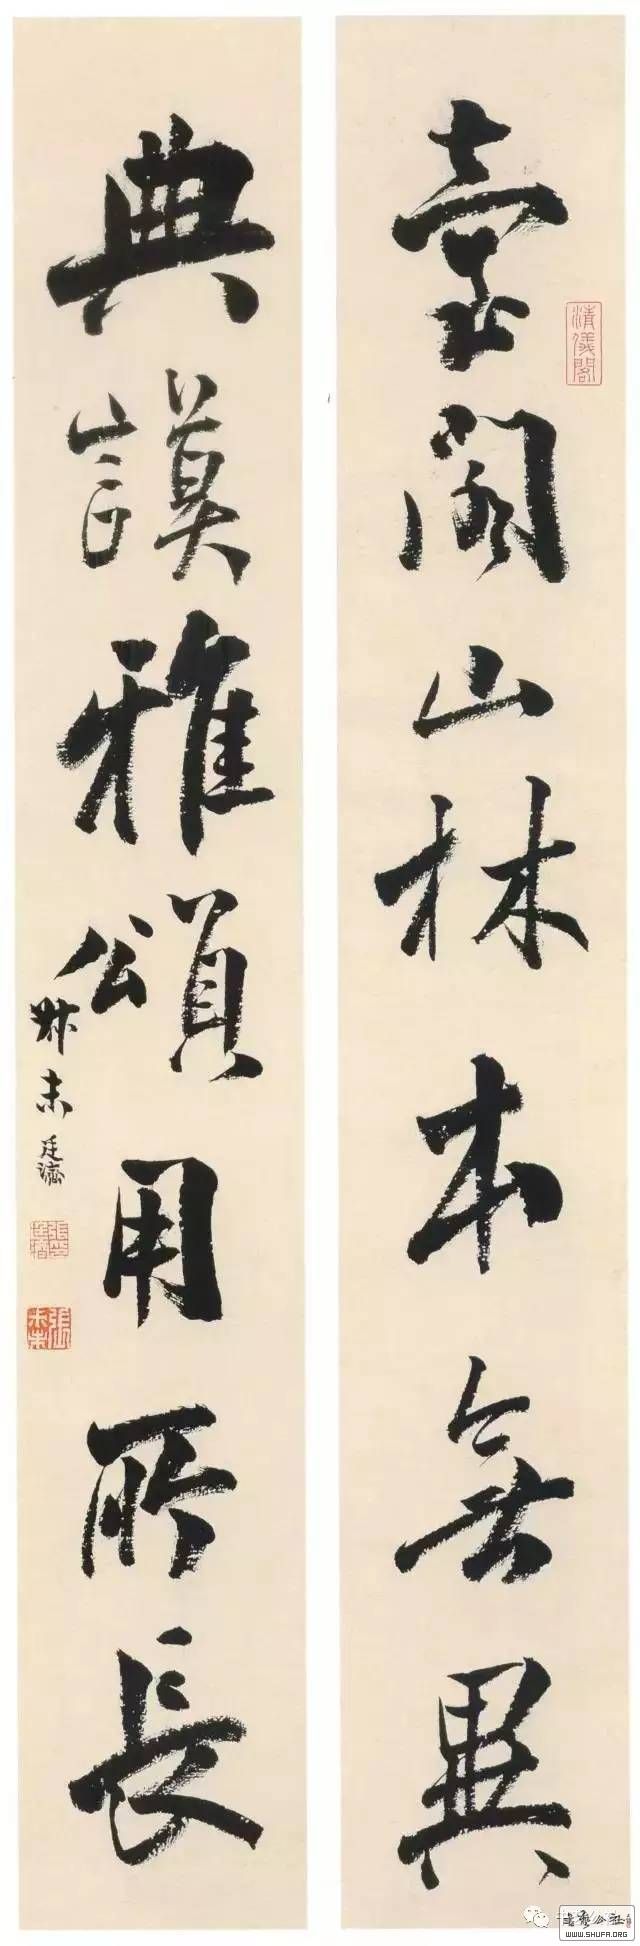 臺閣山林本無異
清儀閣
典謨雅頌用所長
叔未廷濟
張叔未
書藝公社
WWW.SHUFA.ORG